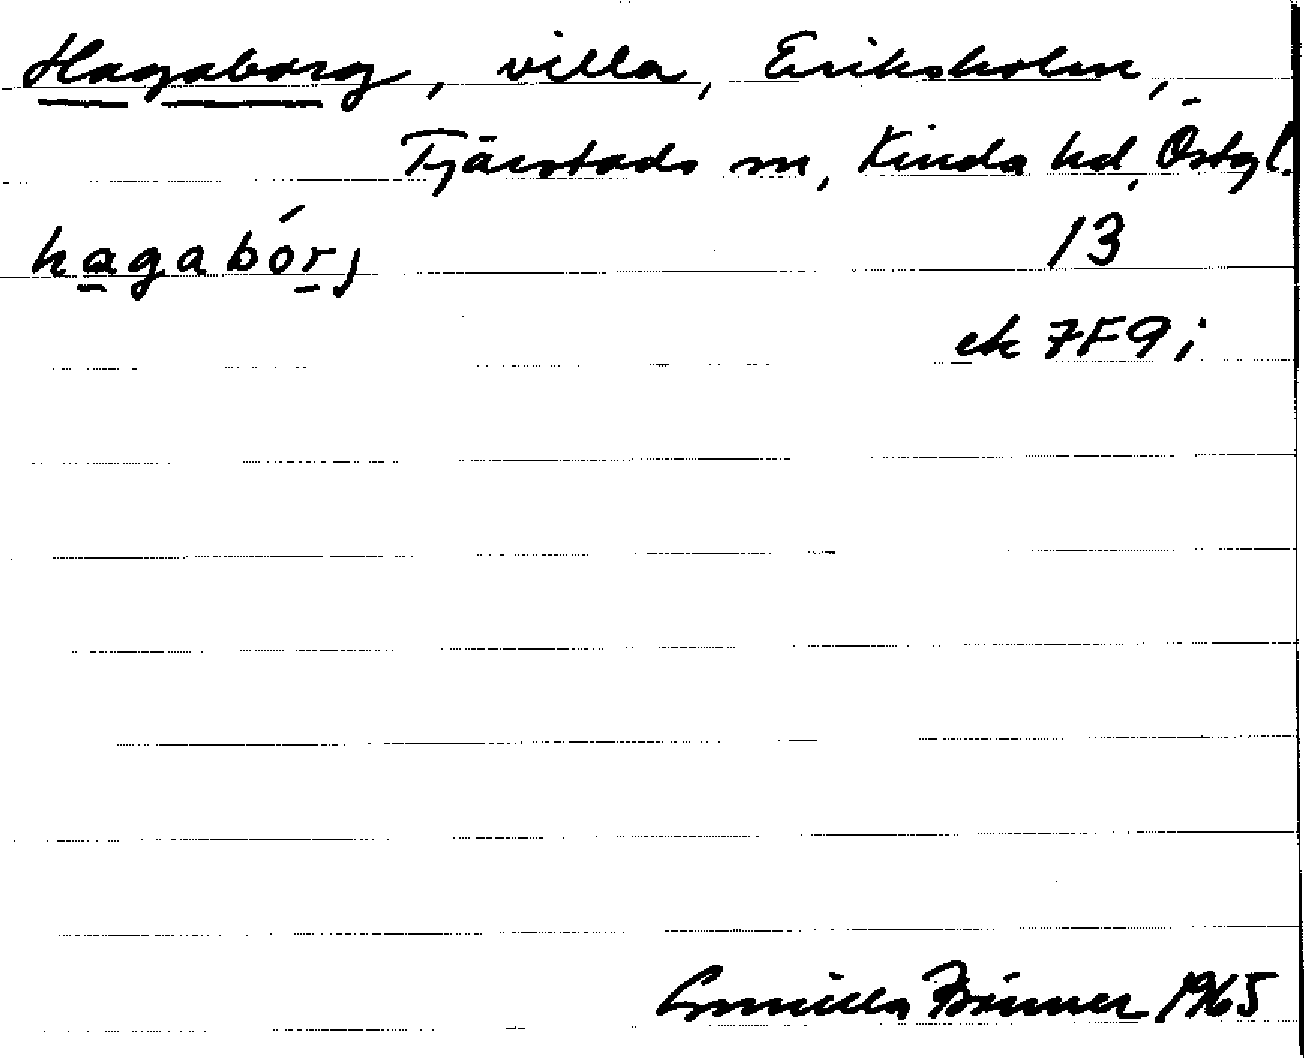 Hagaborg, villa, Eriksholm,
Tjärstads sn, Kinda hd, Östgl.
hagabórj 13
ek 7F9i
Gunilla 1965